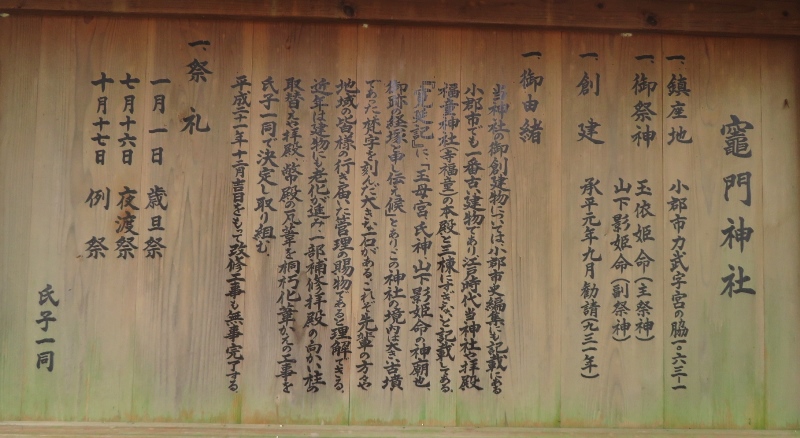 竈門神社
一、鎮座地 小郡市力武字宮の脇一〇六三-一
一、御祭神 玉依姫命(主祭神)
山下影姫命(副祭神)
一、創建 承平元年九月勧請(九三一年)
一、御由緒
当神社の御創建物については、小郡市史編集にも記載にある
小郡市でも一番古い建物であり江戸時代当神社や拝殿
福童神社(寺福童)の本殿と三棟にすぎないと記載してある。
に、「玉母宮氏神、山下影姫命の神廟也、
御跡の経塚と申伝え候」とあり、この神社の境内は大きい古墳
であった梵字を刻んだ大きな石がある。これぞ先輩の方々や
地域の皆様の行き届いた管理の賜物であると理解できる。
近年は建物にも老化が進み、一部補修拝殿の向かい柱の
取替え、拝殿、幣殿の瓦葺を桐朽化葺かえの工事を
氏子一同で決定し取り組む。
平成二十一年十二月吉日をもって改修工事も無事完了する。
一、祭礼
一月一日 歳旦祭
七月十六日 夜渡祭
十月十七日 例祭
氏子一同